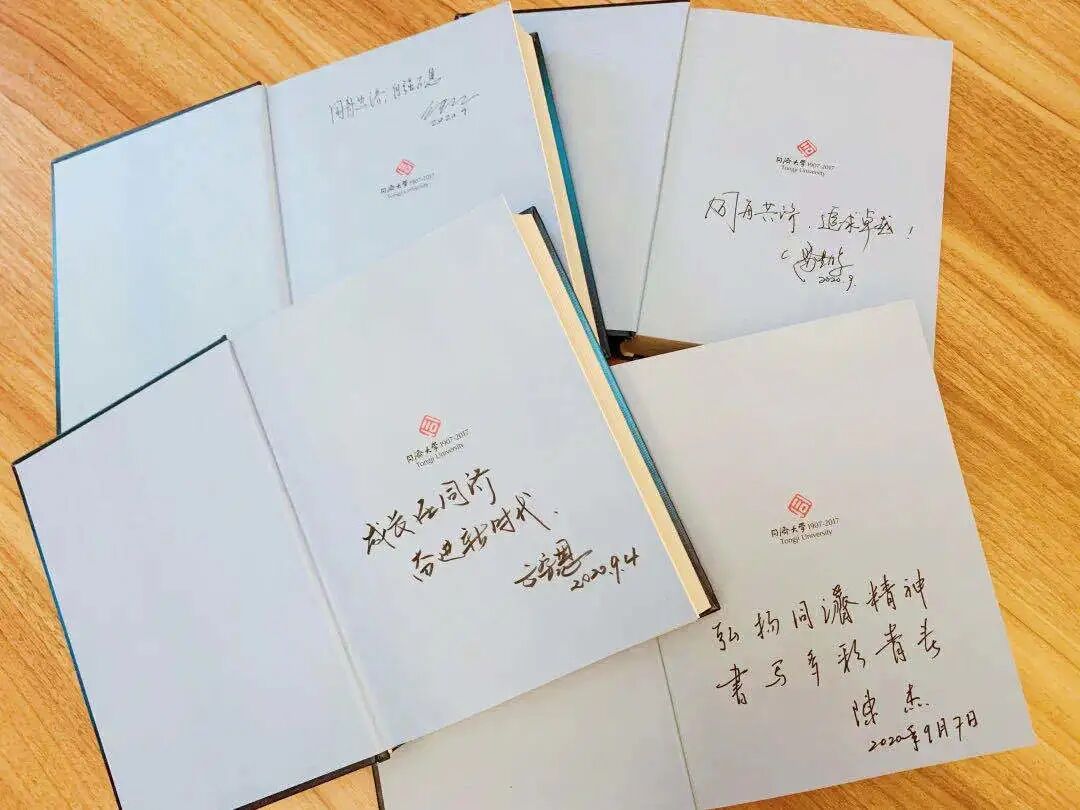 同舟共济，自强不息
2020.9
同濟大学 1907-2017
Tongji University
同濟大学 1907-2017
Tongji University
同舟共济、追求卓越！
2020.9.
同濟大学 1907-2017
Tongji University
成长在同济
奋进新时代.
方守恩
2020.9.4
同濟大学 1907-2017
Tongji University
弘扬同濟精神
書写多彩青春
陳杰
2020年9月7日